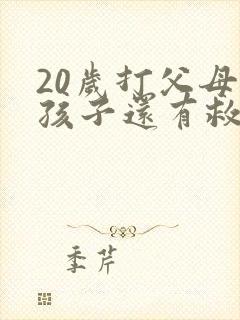 20歲打父母
孩子還有救
季芹